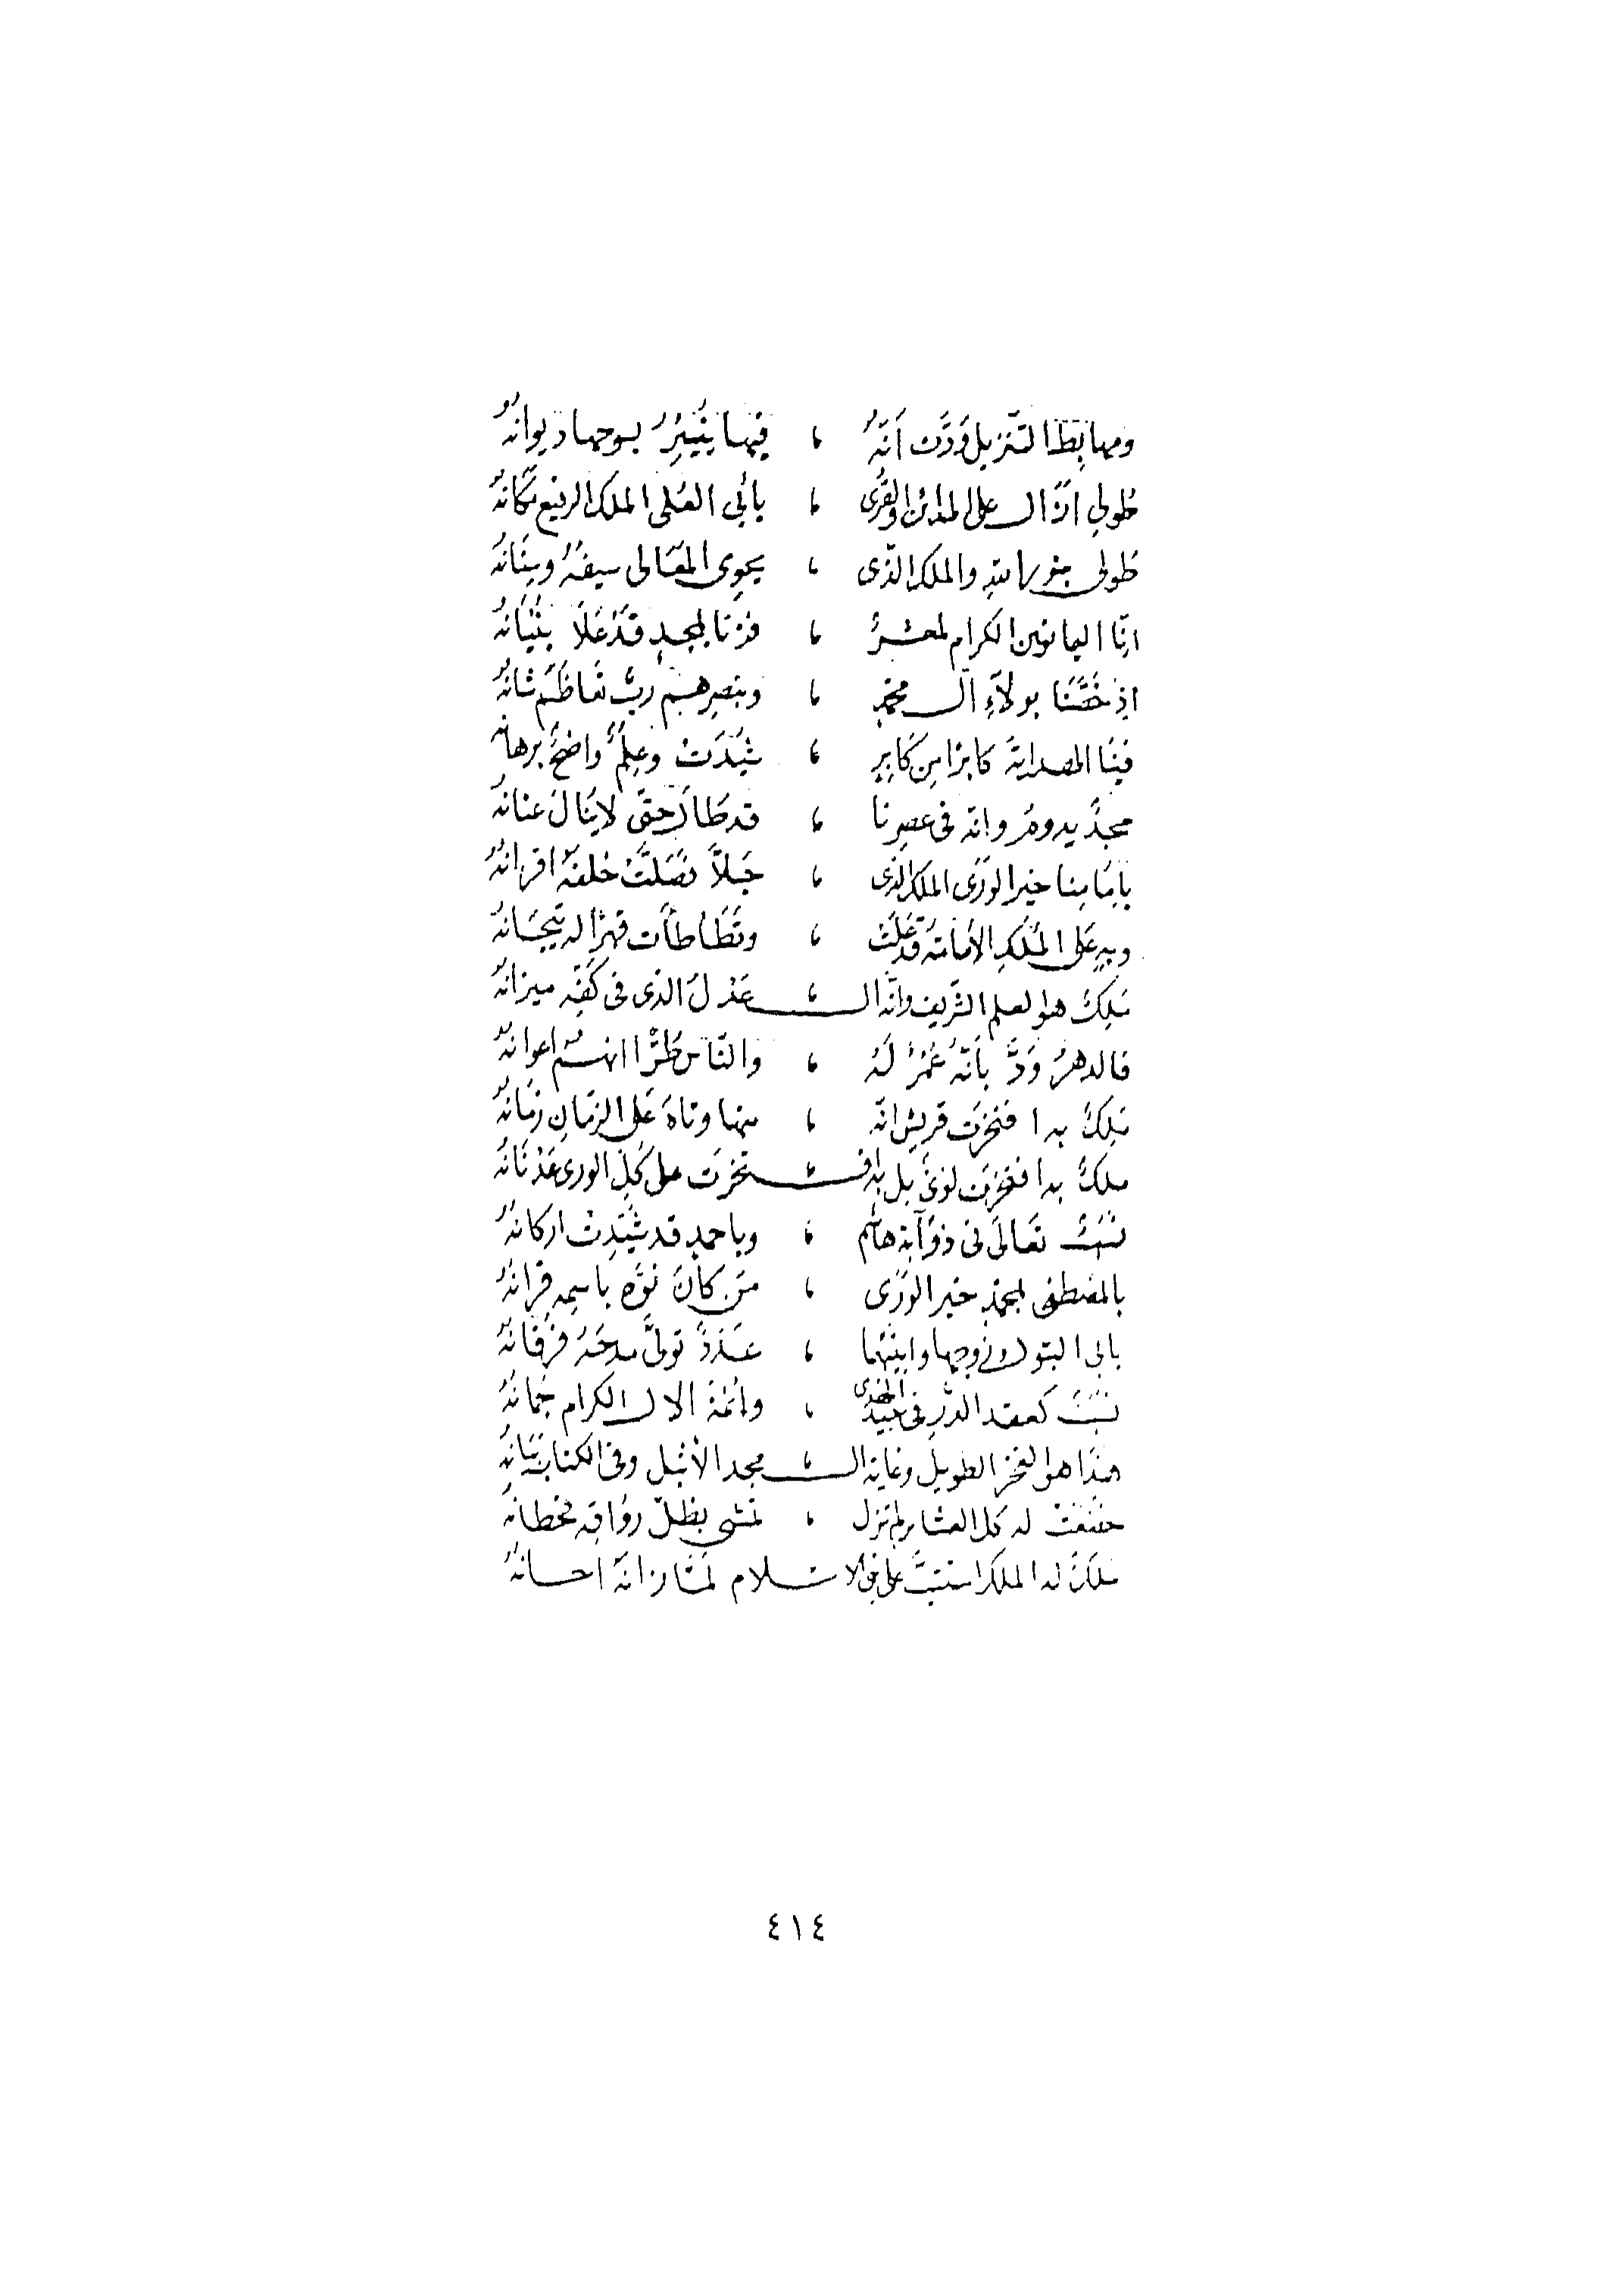 ومهابط التنزيل ودّت انّهُ ، فيها ينيرُ بوجها ديوانهُ
طولي ازال على المدائن والقرى ، بأبي العُلى الملك الرفيع مكانهُ
طولى بنور الله والملك الذى ، يحوى المعالى سيفهُ وبنانهُ
انّا اليمانون الكرام لمعشرُ ، فزنا بمجدٍ قد علا بنيانُه
اذ خصّنا بولاءِ آل محمدٍ ، وبنصرهم ربٌّ تعاظم شانهُ
فينا الصدارة كابرًا من كابرٍ ، شيدت وعلمٌ واضحٌ برهانه
مجدٌ يدوم وانّه فى عصرنا ، قد طال حتى لا ينال عنانهُ
بامامنا خير الورى الملك الذى ، جبلاً خلفهُ اقرانهُ
وبهِ على الملك الأمامة قد علت ، وتطاطأت قهرًا له تيجانهُ
ملكٌ هو العلم الشريف وانّه الـ ، ـعدل الذى فى كفّه ميزانهُ
فالدهرُ ودّ بأنّهُ عمرٌ لهُ ، والنّاس طرًّا انهم اعوانهُ
ملكٌ به افتخرت قريش انّه ، منها وتاهَ على الزمانِ زمانهُ
ملكٌ به افتخرت لوىّ بل به افـ ، ـتخرت على كل الورى عدنانهُ
نسبٌ تعالى فى ذؤآبة هاشم ، وباحمدٍ قد شيّدت اركانهُ
بالمصطفى محمدٍ خير الورى ، من كان نوّه باسمه قرانهُ
بابى البتول وزوجها وابنيهما ، عددٌ تولّى مدحهُ فرقانهُ
نسبٌ كعقد الدّر فى جيد الهدى ، وائمّة الال الكرام جمانهُ
هذا هو الفخر الطويل وغاية الـ ، ـمجد الأثيل وفى الكتاب بيانهُ
خضعت له كل العشائر لم تزل ، تمشى بظلّ رواقه قحطانه
ملكٌ له الملك استتبّ على بنى الاسلام لمّا زانهُ احسانهُ
٤١٤